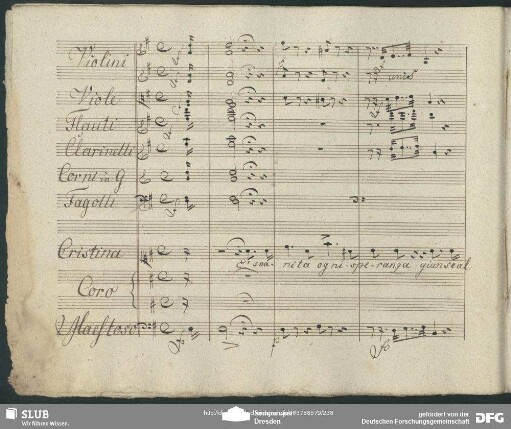 Violini
unis
Viole
Flauti
Clarinetti
Corni in G
Fagotti
Cristina
Svanita ogni speranza
Coro
Maestoso
SLUB
Wir führen Wissen.
Dresden
gefördert von der
Deutschen Forschungsgemeinschaft
DFG